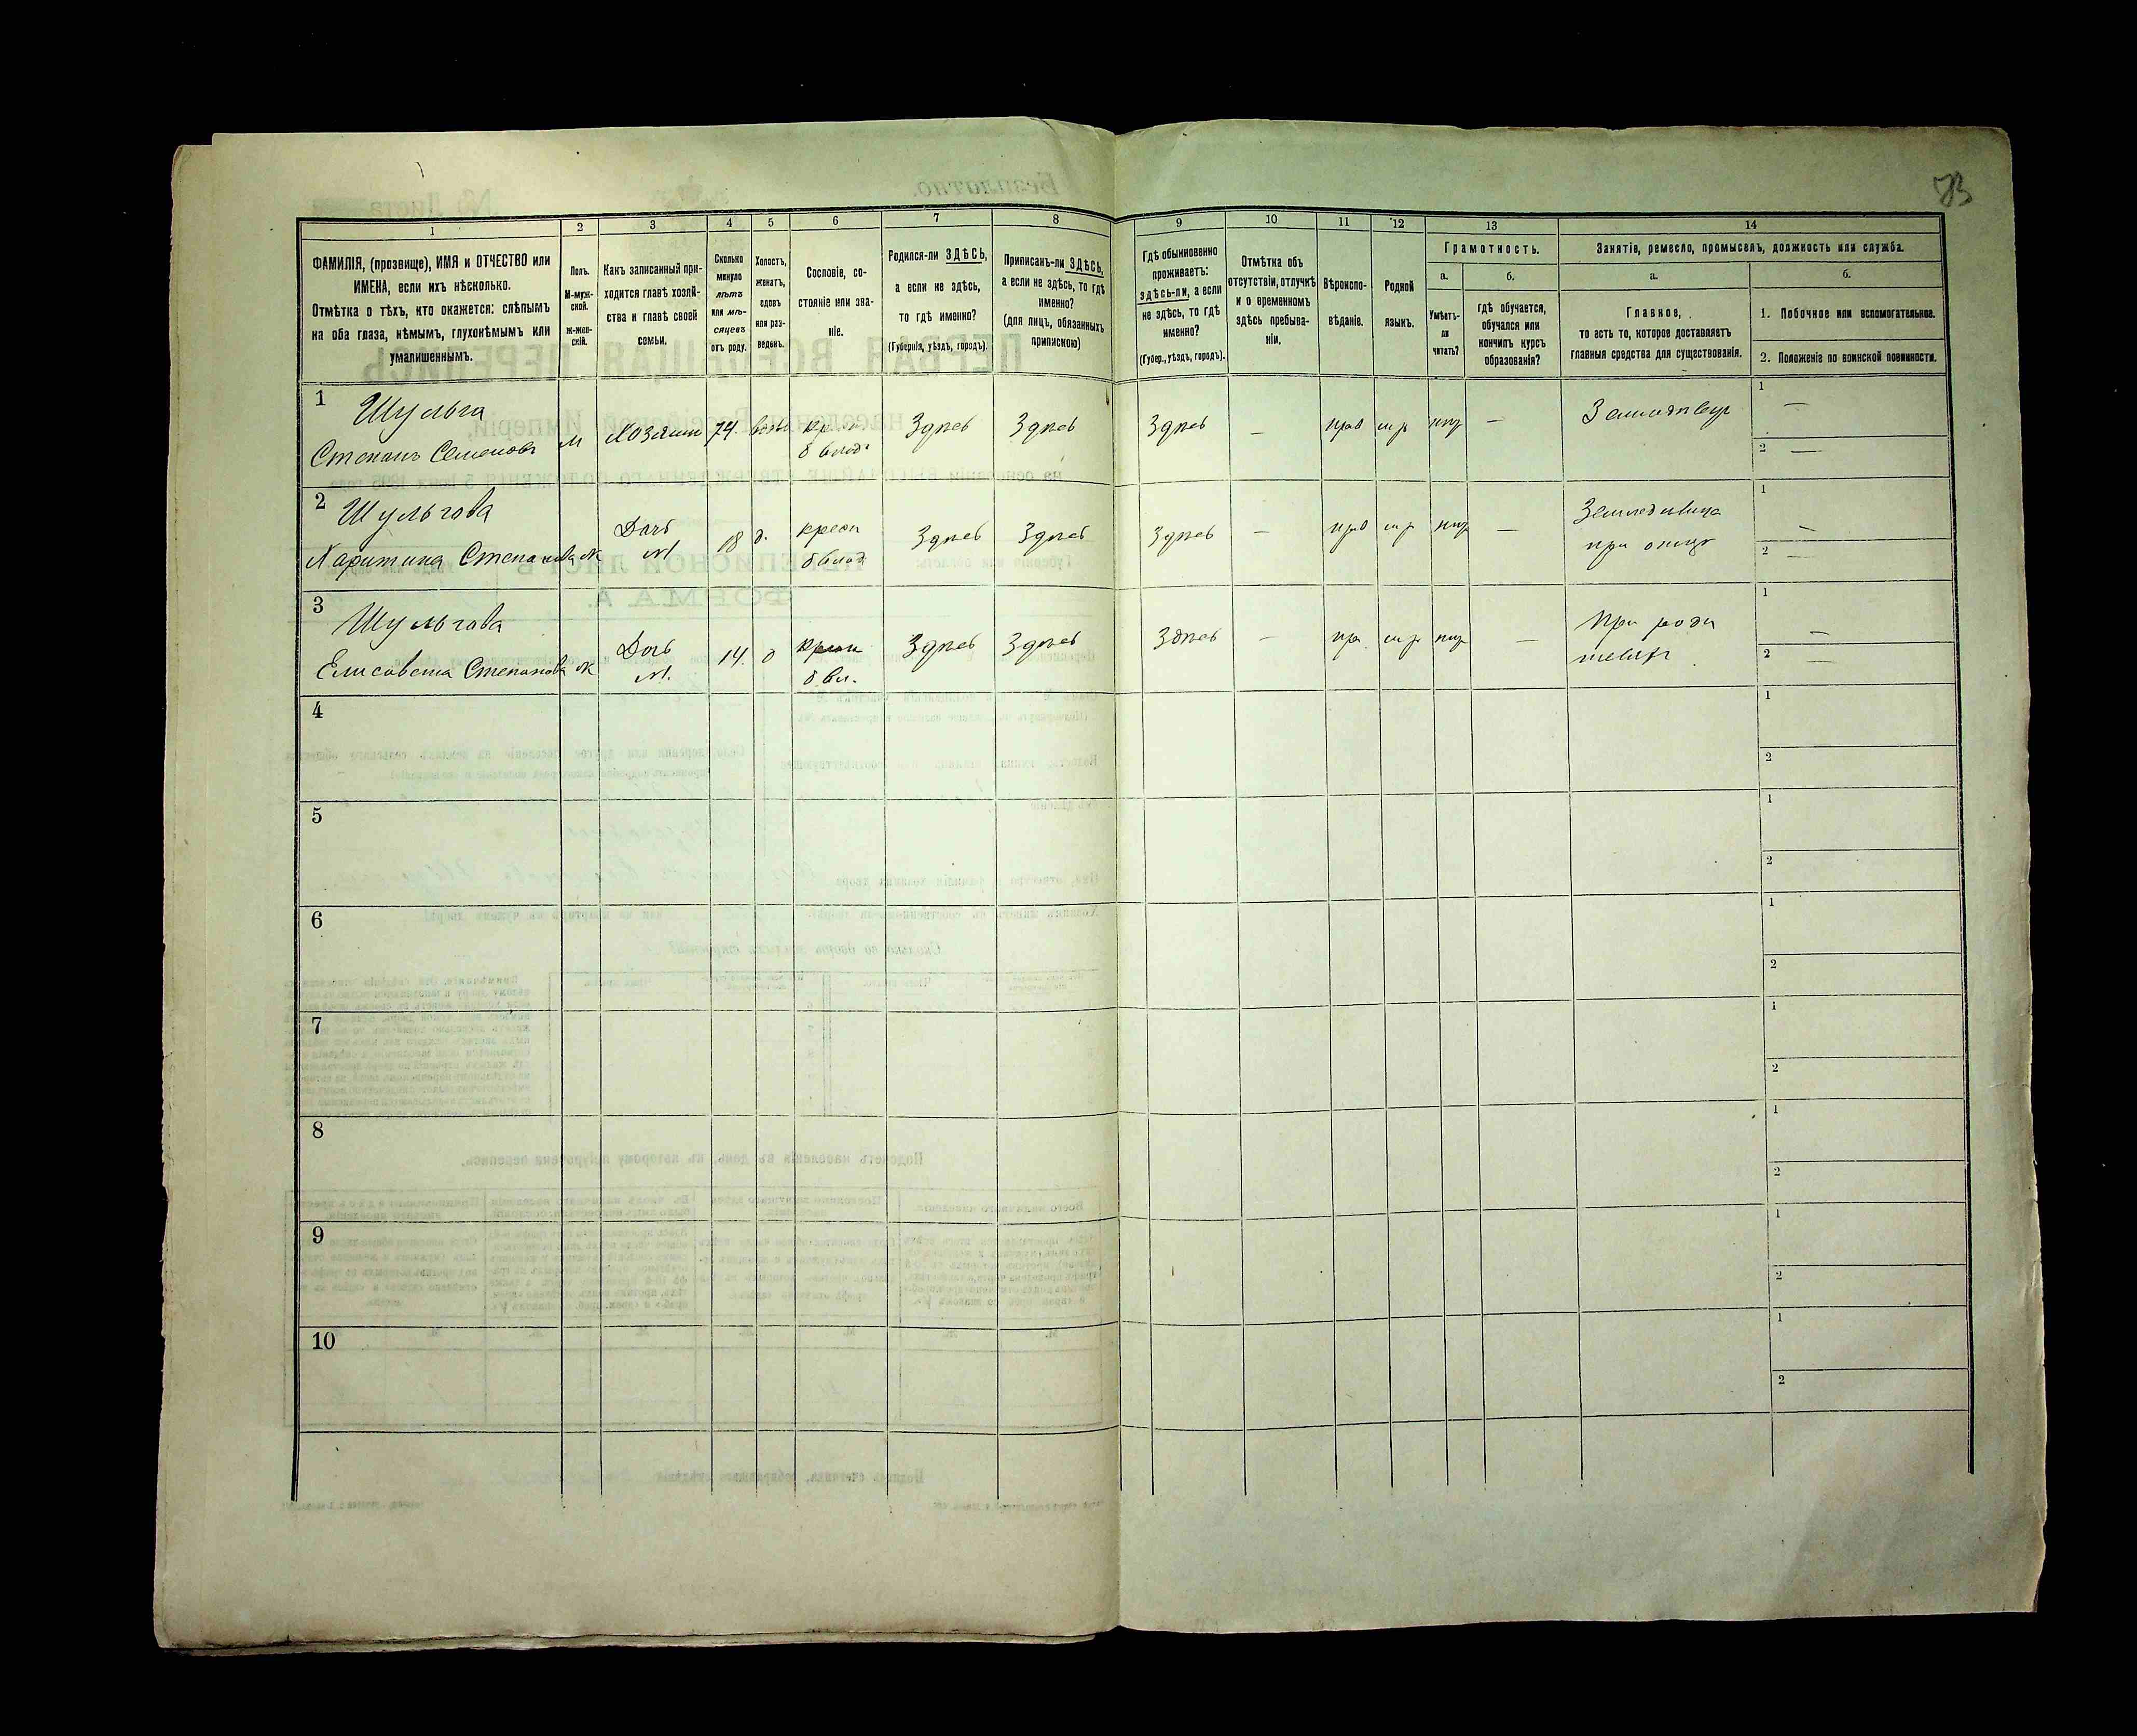 73
1
2
3
4
5
6
7
8
9
10
11
12
13
14
ФАМИЛІЯ, (прозвище), ИМЯ и ОТЧЕСТВО или
ИМЕНА, если ихъ нѣсколько.
Отмѣтка о тѣхъ, кто окажется: слѣпымъ
на оба глаза, нѣмымъ, глухонѣмымъ или
умалишеннымъ.
Полъ.
М-муж-
ской.
ж-жен-
скій.
Какъ записанный при-
ходится главѣ хозяй-
ства и главѣ своей
семьи.
Сколько
минуло
лѣтъ
или мѣ-
сяцевъ
отъ роду.
Холостъ,
женатъ,
вдовъ
или раз-
веденъ.
Сословіе, со-
стояніе или зва-
ніе.
Родился-ли ЗДѢСЬ,
а если не здѣсь,
то гдѣ именно?
(Губернія, уѣздъ, городъ).
Приписанъ-ли ЗДѢСЬ,
а если не здѣсь, то гдѣ
именно?
(для лицъ, обязанныхъ
припискою)
Гдѣ обыкновенно
проживаетъ:
здѣсь-ли, а если
не здѣсь, то гдѣ
именно?
(Губер., уѣздъ, городъ).
Отмѣтка объ
отсутствіи, отлучкѣ
и о временномъ
здѣсь пребыва-
ніи.
Вѣроиспо-
вѣданіе.
Родной
языкъ.
Грамотность.
а.
Умѣетъ-
ли
читать?
б.
гдѣ обучается,
обучался или
кончилъ курсъ
образованія?
Занятіе, ремесло, промыселъ, должность или служба.
а.
Главное,
то есть то, которое доставляетъ
главныя средства для существованія.
б.
1. Побочное или вспомогательное.
2. Положеніе по воинской повинности.
1 Шульга
Степанъ Семеновъ
м Хозяинъ 74.
б влад.
Здѣсь Здѣсь Здѣсь —
—
1 —
2 —
2 Шульгова
Харитина Степанова ж
Дочь
М
18 д.
крест
б влад
Здѣсь Здѣсь Здѣсь —
—
при отцѣ
1 —
2 —
3 Шульгова
Елисавета Степанова ж
Дочь
М.
14. д
крест
б вл.
Здѣсь Здѣсь Здѣсь —
—
При роди
теляхъ
1 —
2 —
4
1
2
5
1
2
6
1
2
7
1
2
8
1
2
9
1
2
10
1
2